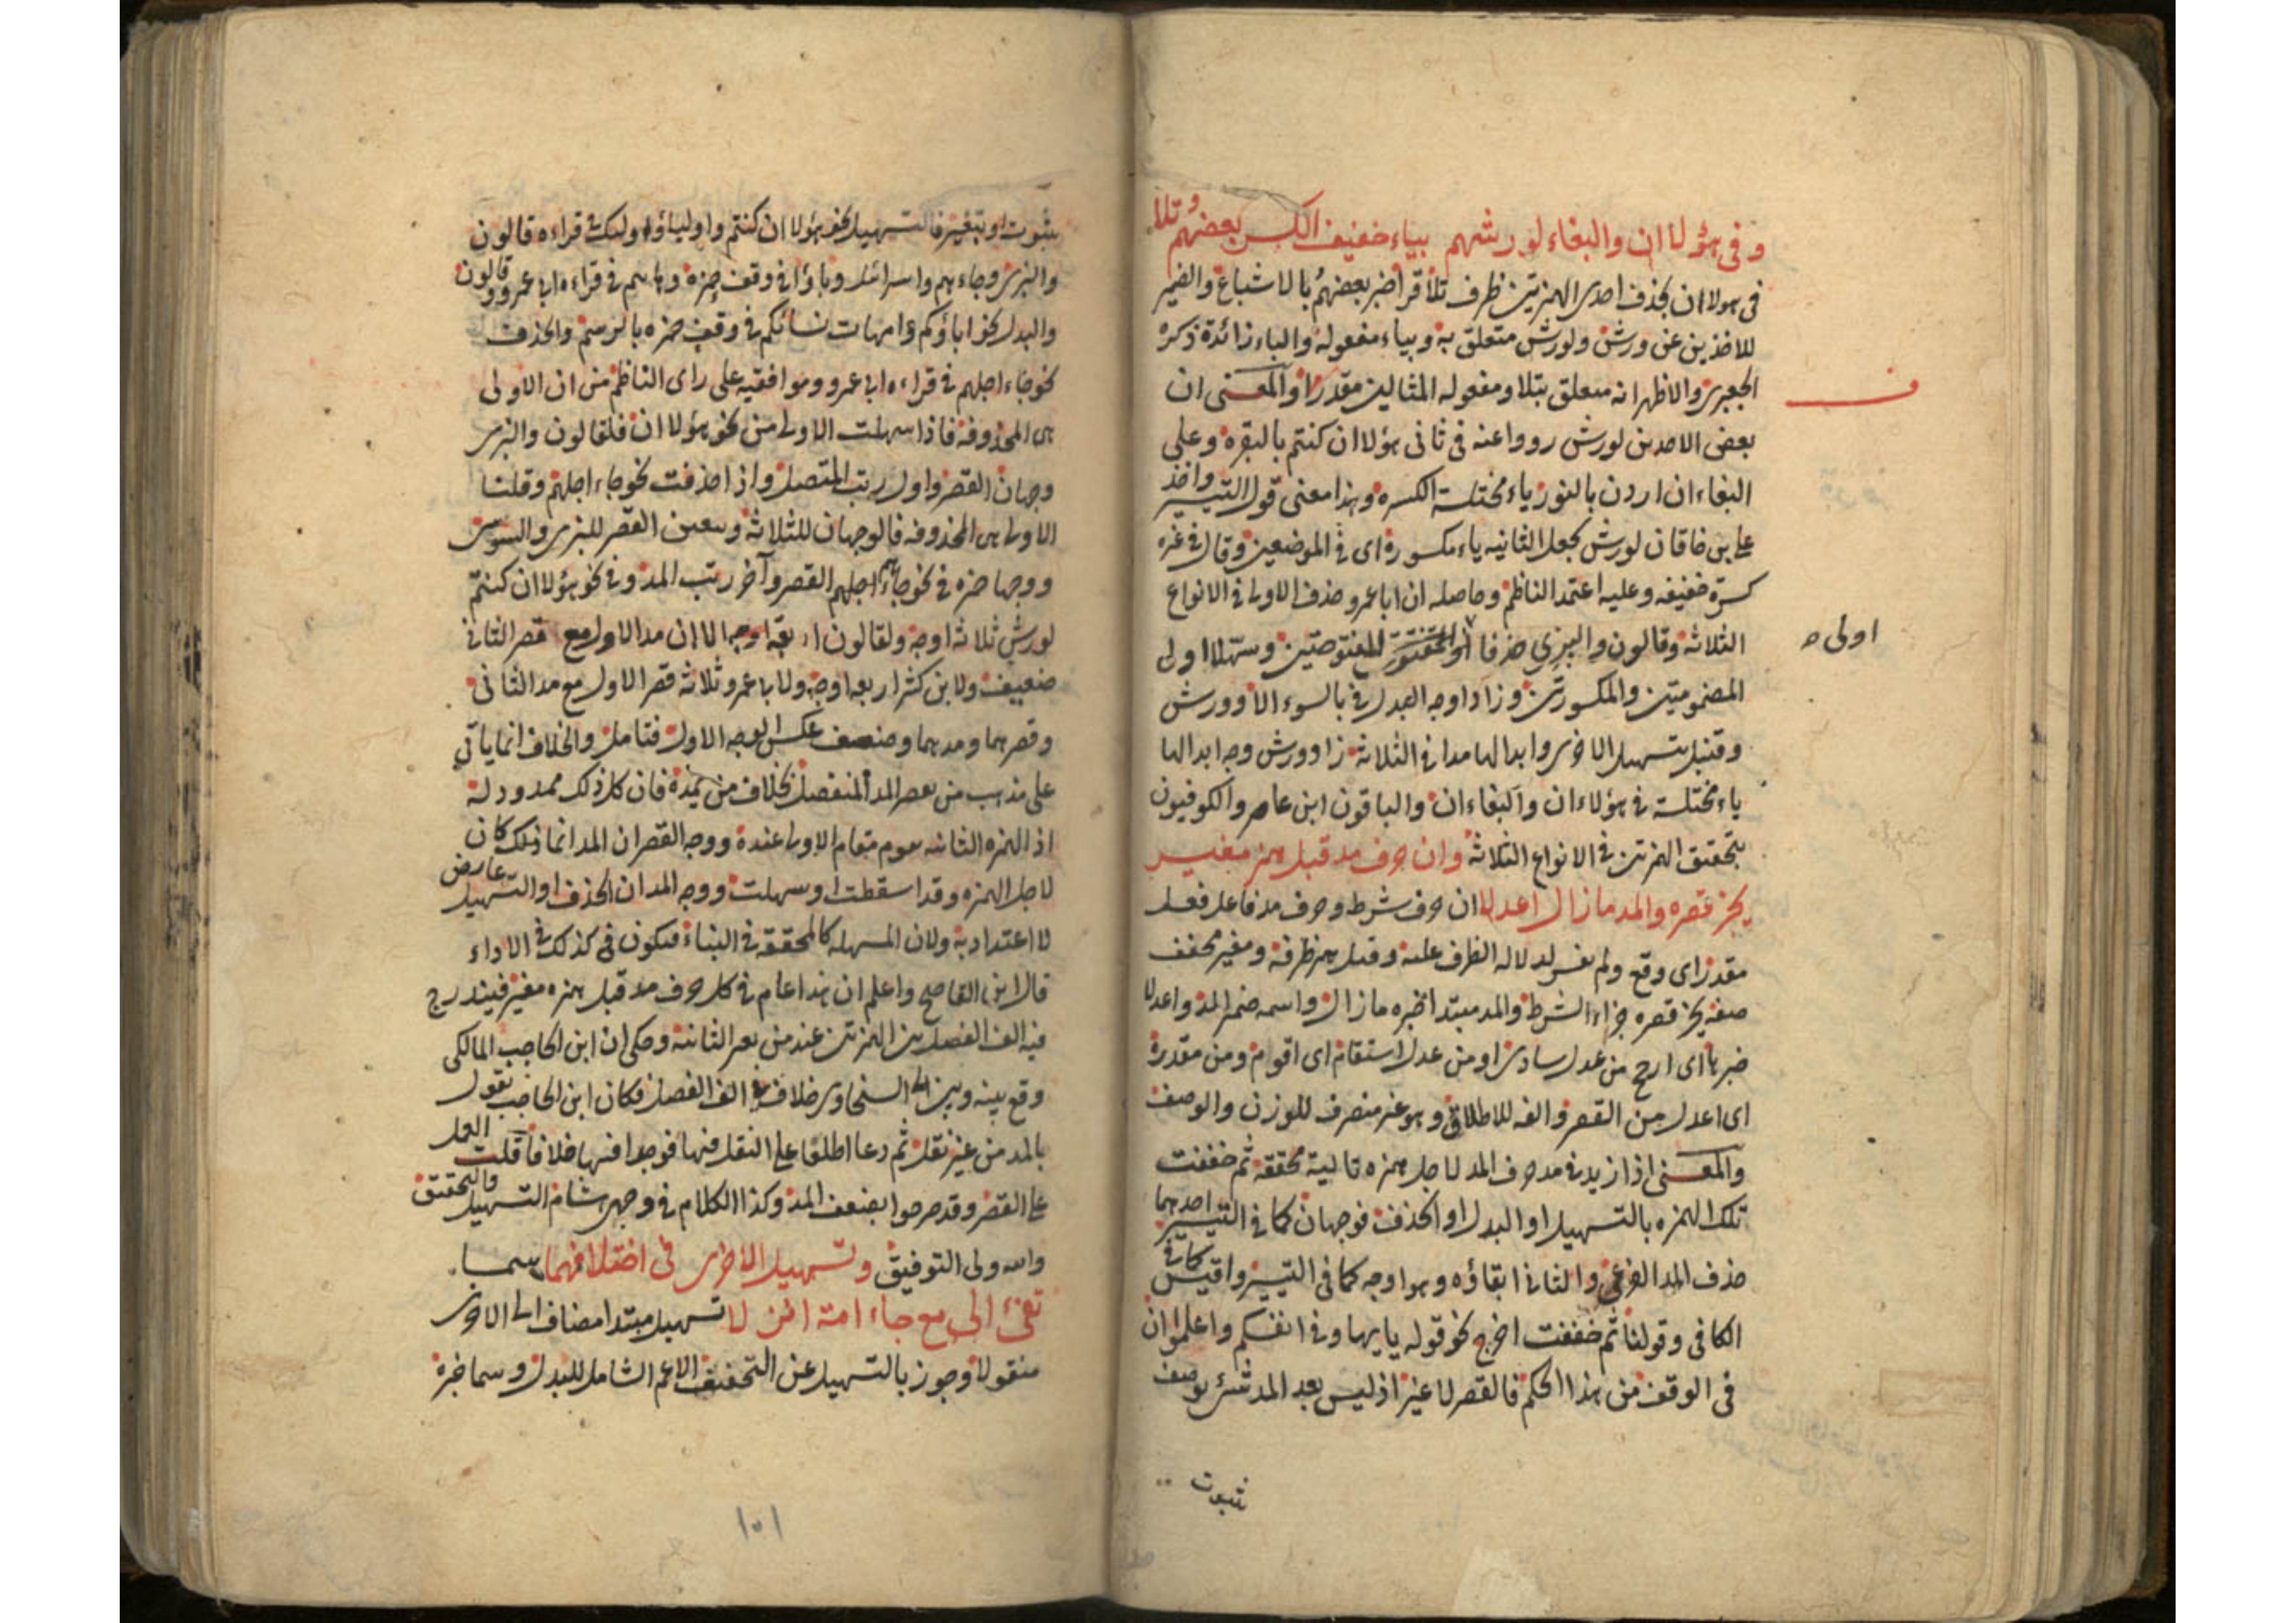 وفي هؤلا ان والبغاء لورشهم بياء خفيف الكسر بعضهم تلا
في هولا ان بحذف احدى الهمزتين ظرف تلا قرأ خبر بعضهم بالاشباع والضمير
للاخذين عن ورش ولورش متعلق به وبياء مفعوله والباء زائدة ذكره
الجعبري والاظهر انه متعلق بتلا ومفعوله المثالين مقدرا والمعنى ان
بعض الاخذين لورش رووا عنه في ثاني هؤلا ان كنتم بالبقرة وعلى
البغاء ان اردن بالنور ياء مختلسة الكسره وهذا معنى قول التيسير واخذ
على بن خاقان لورش بجعل الثانيه ياء مكسورة اى في الموضعين وقال في غيره
كسرة خفيفه وعليه اعتمد الناظم وحاصله ان ابا عمرو حذف الاولى في الانواع
الثلاثة وقالون والبزي حذفا المفتوحتين وسهلا اولى
اولى
المضمومتين والمكسورتين وزادا وجه البدل في بالسوء الا وورش
وقنبل بتسهيل الاخرى وابدالها مدا في الثلاثة زاد ورش وجه ابدالها
ياء مختلسة في هؤلاء ان والبغاء ان والباقون ابن عامر والكوفيون
بتحقيق الهمزتين في الانواع الثلاثة وان حرف مد قبل همز مغير
يجز قصره والمد ما زال اعدلا ان حرف شرط وحرف مد فاعل فعل
مقدر اى وقع ولم يفسر لدلالة الظرف عليه وقبل همز ظرفه ومغير مخفف
صفته يجز قصره جزاء الشرط والمد مبتدا خبره ما زال واسمه ضمير المد واعدلا
خبرها اى ارجح من عدل ساوى او من عدل استقام اى اقوم ومن مقدرة
اى اعدل من القصر والفه للاطلاق وهو غير منصرف للوزن والوصف
والمعنى اذا زيد في مد حرف المد لاجل همزه تالية محققة ثم خففت
تلك الهمزه بالتسهيل او البدل او الحذف فوجهان كما في التيسير احدهما
حذف المد الفرعي والثاني ابقاؤه وهو اوجه كما في التيسير واقيس كما في
الكافي وقولنا ثم خففت اخرج نحو قوله يايها وفي انفسكم واعلموا ان
في الوقف من هذا الحكم فالقصر لا غير اذ ليس بعد المد شىء يوصف
ثبوت
بثبوت او بتغير فالتسهيل نحو هؤلا ان كنتم واولياؤ اولئك في قراءه قالون
والبزي وجاءهم واسرائيل وباؤا في وقف حمزه وها هم في قراءه ابي عمرو وقالون
والبدل نحو اباؤكم وامهات نسائكم في وقف حمزه بالرسم والحذف
نحو جاء اجلهم في قراءه ابي عمرو وموافقيه على راى الناظم من ان الاولى
هى المحذوفه فاذا سهلت الاولى من نحو هؤلا ان فلقالون والبزي
وجهان القصر واول رتب المتصل واذا حذفت نحو جاء اجلهم وقلنا
الاولى هى المحذوفه فالوجهان للثلاثة ويتعين القصر للبزي والسوسي
ووجها حمزه في نحو جاءهم اجلهم القصر وآخر رتب المد وفي نحو هؤلا ان كنتم
لورش ثلاثة اوجه ولقالون اربعة اوجه الا ان مد الاول مع قصر الثاني
ضعيف ولابن كثير اربعه اوجه ولابي عمرو ثلاثة قصر الاول مع مد الثاني
وقصرهما ومدهما وضعف عكس الوجه الاول فتامل والخلاف انما ياتي
على مذهب من يقصر المد المنفصل بخلاف من يمده فان كل ذلك ممدود له
اذ الهمزه الثانيه تقوم مقام الاولى عنده ووجه القصر ان المد انما كان
لاجل الهمزه وقد اسقطت او سهلت ووجه المد ان الحذف او التسهيل عارض
لا اعتداد به ولان المسهله كالمحققة في البناء فيكون في كذلك في الاداء
قال ابن القاصح واعلم ان هذا عام في كل حرف مد قبل همزه مغير فيندرج
فيه الف الفصل بين الهمزتين عند من يغير الثانية وحكى ان ابن الحاجب المالكي
وقع بينه وبين السخاوى خلاف في الف الفصل فكان ابن الحاجب يقول
بالمد من غير نقل ثم دعا اطلقا على النقل فيها فوجدا فيها خلافا قلت العمل
على القصر وقد صرحوا بضعف المد وكذا الكلام في وجهى هشام التسهيل والتحقيق
والله ولى التوفيق وتسهيل الاخرى في اختلافهما سما
تفئ الى مع جاء امة انزلا تسهيل مبتدا مضاف الى الاخرى
منقولا وجوز بالتسهيل عن التخفيف الاعم الشامل للبدل وسما خبره
١٠١